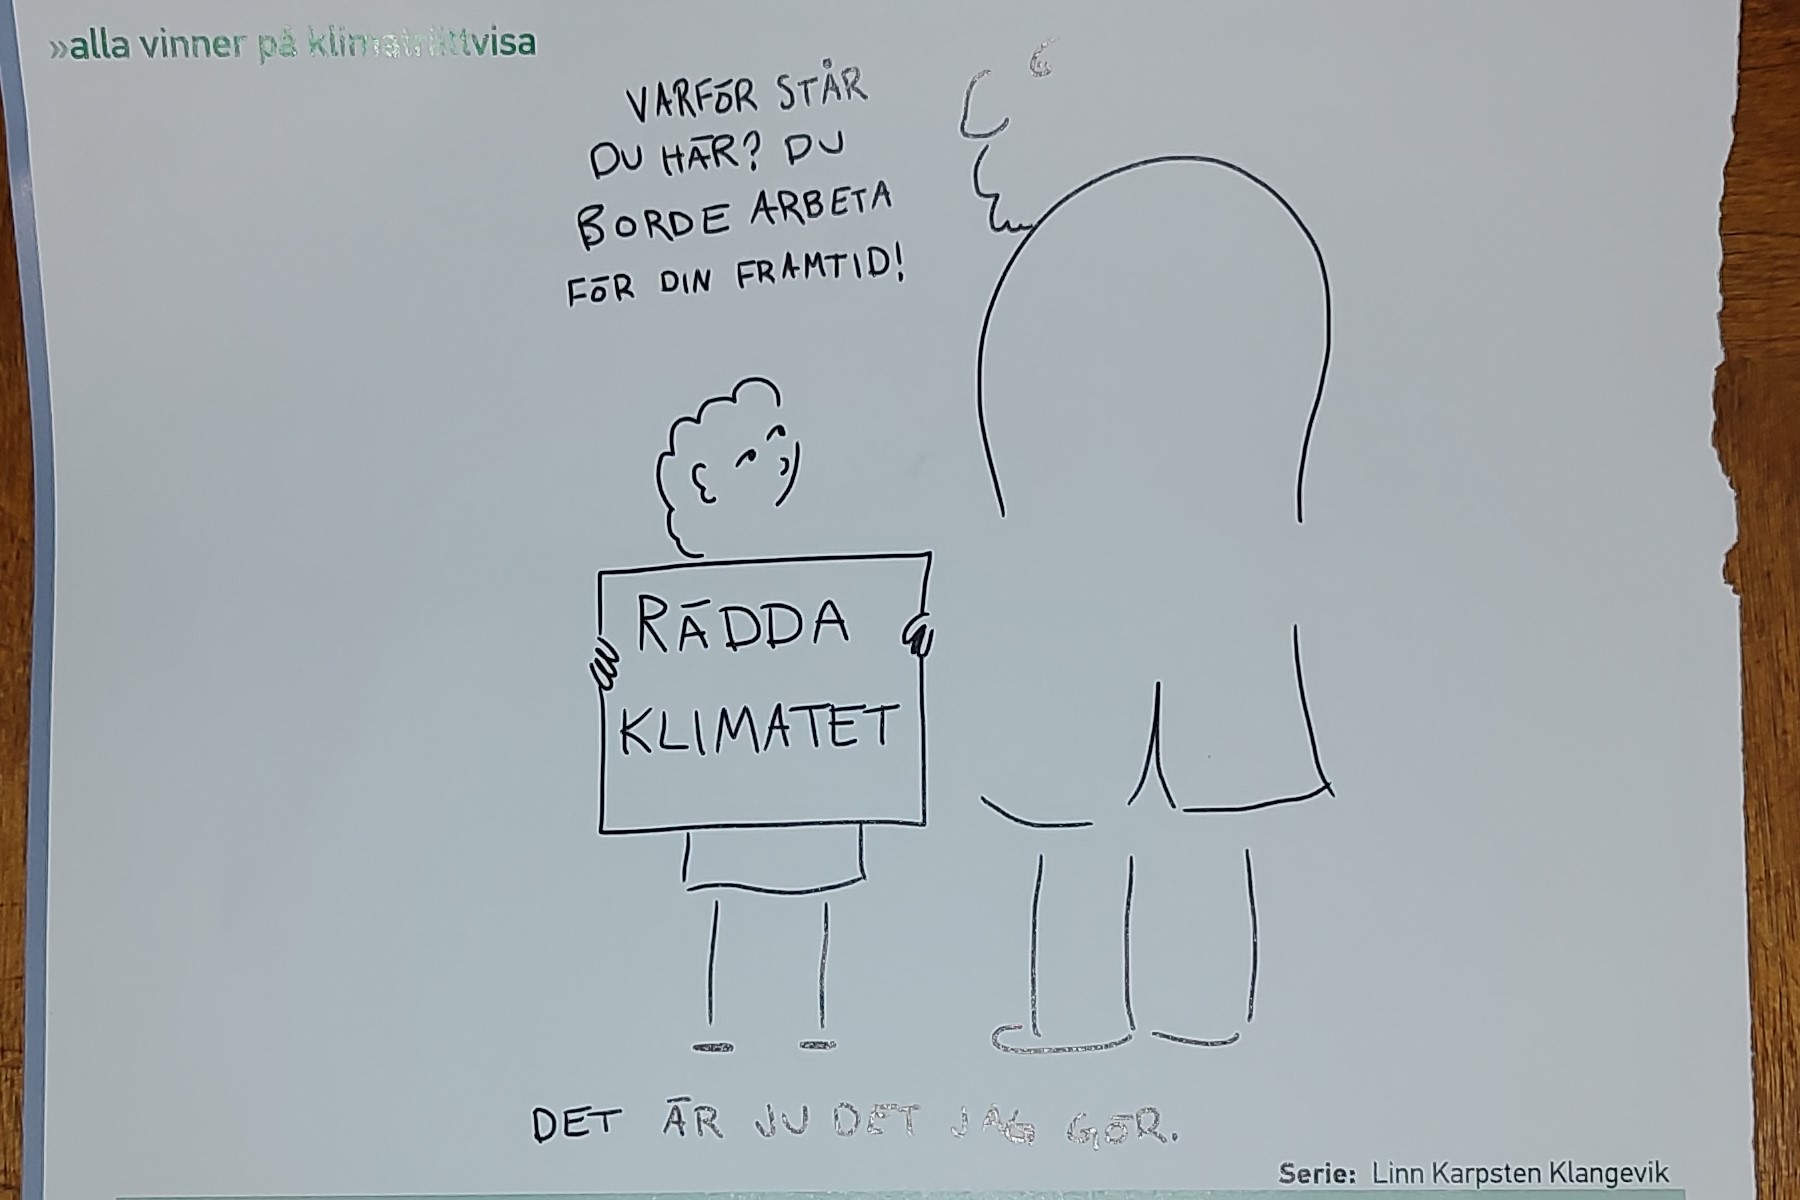 »alla vinner på klimaträttvisa
VARFÖR STÅR
DU HÄR? DU
BORDE ARBETA
FÖR DIN FRAMTID!
RÄDDA
KLIMATET
DET ÄR JU DET JAG GÖR.
Serie: Linn Karpsten Klangevik